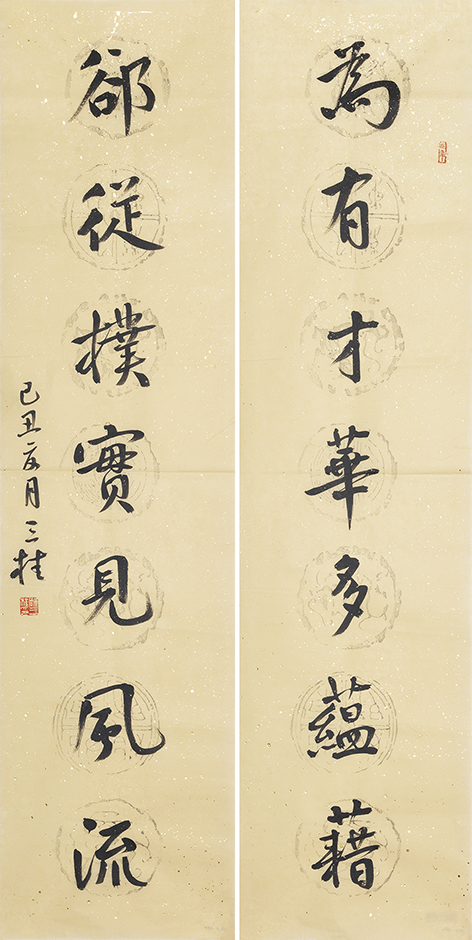 為有才華多蘊藉
郤從樸實見風流
己丑月三桂